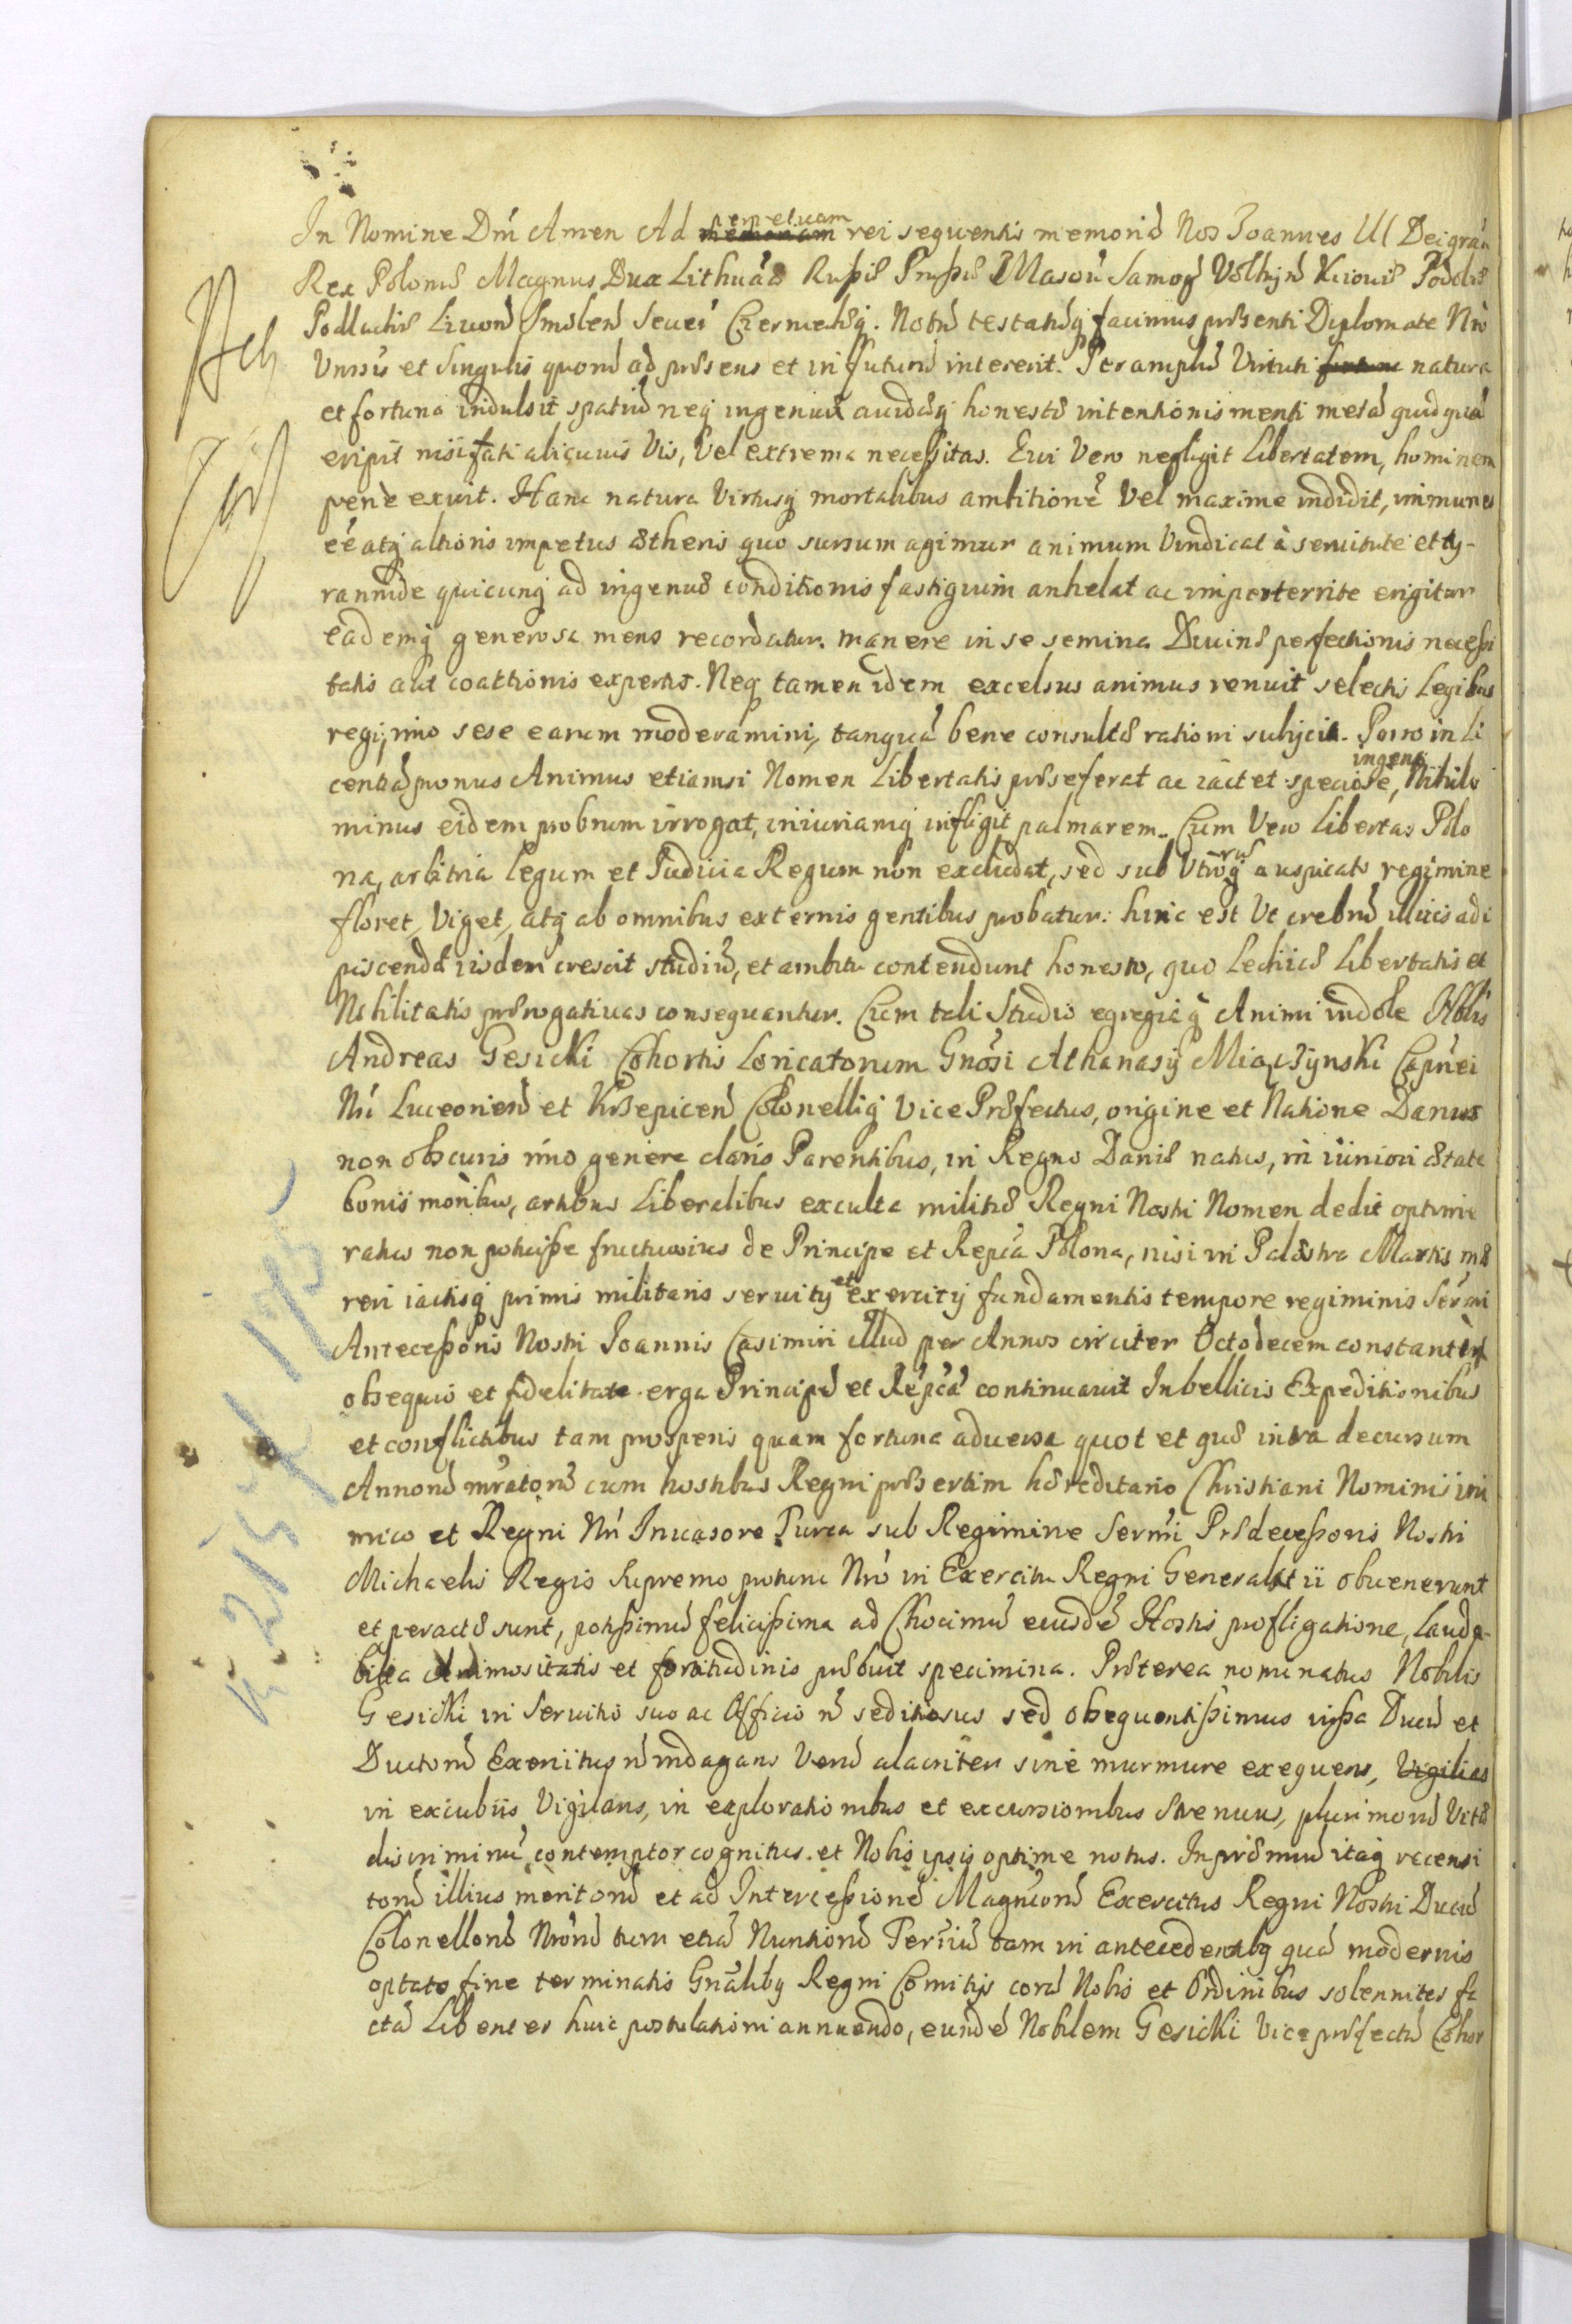 In Nomine Dni Amen Ad perpetuam memoriam rei sequentis memoriã Nos Joannes III Dei grãa
Rex Poloniæ Magnus Dux Lithuãæ Rußiæ Prußiæ Masoũ Samog Volhyñ Kijouiæ Podoliæ
Podlachiæ Liuoñ Smolen Seueř Czerniechæq. Notũ testatũq facimus præsenti Diplomate Nrõ
Vniursis et Singulis quorũ ad præsens et in futurũ intererit. Peramplũ Virtuti fortuna natura
et fortuna indulsit spatiũ neq ingenuæ auidæq honestæ intentionis menti metã quidquã
eripit nisi fati alicuius Vis, Vel extrema neceßitas. Qui Vero negligit Libertatem, hominem
penè exuit. Hanc natura Virtusq mortalibus ambitionẽ Vel maxime indidit, immunes
eẽ atq altioris impetus ætheris quo sursum agimur animum Vindicat à seruitute et ty-
rannide quicunq ad ingenuæ conditionis fastigium anhelat ac imperterrite erigitur
eademq generosa mens recordatur manere in se semina Diuinæ perfectionis neceßi
tatis aut coactionis expertis. Neq tamen idem excelsus animus renuit selectis Legibus
regi, imo sese earum moderamini, tanquã bene consultæ rationi subijcit. Porro in Li
centiã pronus Animus etiamsi Nomen Libertatis præseferat ac iactet speciose, ingens Nihilo
minus eidem probrum irrogat, iniuriamq infligit palmarem. Cum Vero Libertas Polo
na, arbitria Legum et Judicia Regum non excludat, sed sub Vtrorũq auspicato regimine
floret, Viget, atq ab omnibus externis gentibus probatur: hinc est Vt crebrũ illius adi
piscendæ iisdem crescit studiũ, et ambitu contendunt honesto, quo Lechicæ Libertatis et
Nobilitatis prærogatiuas consequantur. Cum tali Studio egregiaq Animi indole Nblis
Andreas Gesicki Cohortis Loricatorum Gnosi Athanasij Miączynski Capnei
Nri Luceorien et Krzepicen Colonelliq Vice Præfectus, origine et Natione Danus
non obscuris imo genere claris Parentibus, in Regno Daniæ natus, in iuniori ætate
bonis moribus, artibus Liberalibus exculta militiæ Regni Nostri Nomen dedit optime
ratus non potuiße fructuosius de Principe et Repca Polona, nisi in Palæstra Martis me
reri iactisq primis militaris seruitij et exercitij fundamentis tempore regiminis Sermi
Anteceßoris Nostri Joannis Casimiri illud per Annos circiter Octodecem constanter
obsequio et fidelitate erga Principẽ et Repcã continuauit In bellicis Expeditionibus
et conflictibus tam prosperis quam fortuna aduersa quot et quæ intra decursum
Annorũ mratorũ cum hostibus Regni præsertim hæreditario Christiani Nominis ini
mico et Regni Nri Inuasore Turca sub Regimine Sermi Prædeceßoris Nostri
Michaelis Regis Supremo protunc Nro in Exercitu Regni Generalatui obuenerunt
et peractæ sunt, potißimũ felicißima ad Chocimũ eiusdẽ Hostis profligatione, Lauda-
bilia Animositatis et fortitudinis præbuit specimina. Præterea nominatus Nobilis
Gesicki in Seruitio suo ac Officio ñ seditiosus sed obsequentißimus iußa Ducũ et
Ductorũ Exercitus ñ indagans Verũ alacriter sine murmure exequens, Vigilias
in excubiis Vigilans, in explorationibus et excursionibus Strenuus, plurimorũ Vitæ
discriminũ contemptor cognitus et Nobis ipsis optime notus. In præmiũ itaq recensi
torũ illius meritorũ et ad Interceßionẽ Magncorũ Exercitus Regni Nostri Ducũ
Colonellorũ Nrorũ tum etiã Nuntiorũ Terriũ tam in antecedentibq quã modernis
optato fine terminatis Gnãlibq Regni Comitijs corã Nobis et Ordinibus solenniter fa
ctã Libenter huic postulationi annuendo, eundẽ Nobilem Gesicki Vice præfectũ Cohor